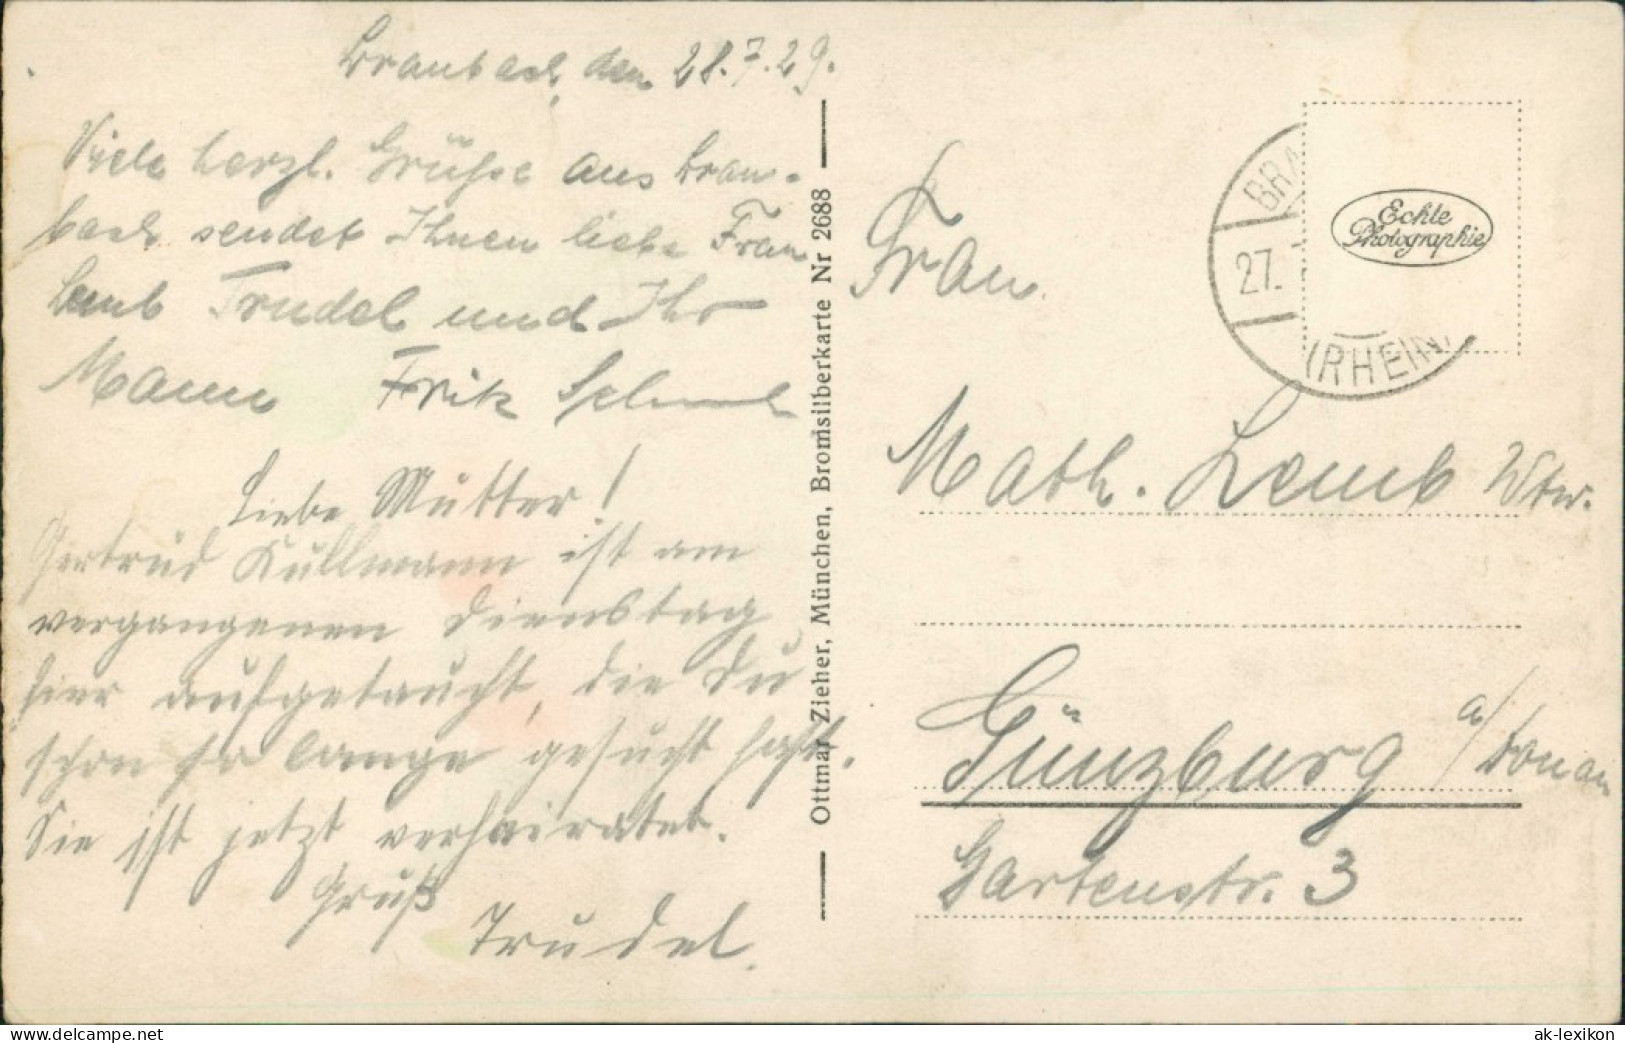 Braubach, den 28.7.29.
Viele herzl. Grüße aus Brau-
bach sendet Ihnen liebe Frau
Lemb Trudel und Ihr
Mann Fritz
Liebe Mutter!
Gertrud Kullmann ist am
vergangenen Dienstag
hier aufgetaucht, die Du
schon so lange gesucht hast.
Sie ist jetzt verheiratet.
Gruß
Trudel.
Ottmar Zieher, München, Bromsilberkarte Nr 2688
BRA
27.
(RHEIN)
Echte
Photographie
Frau
Math. Lemb Wtw.
Günzburg a/Donau
Gartenstr. 3
hippostcard.com
ak-lexikon